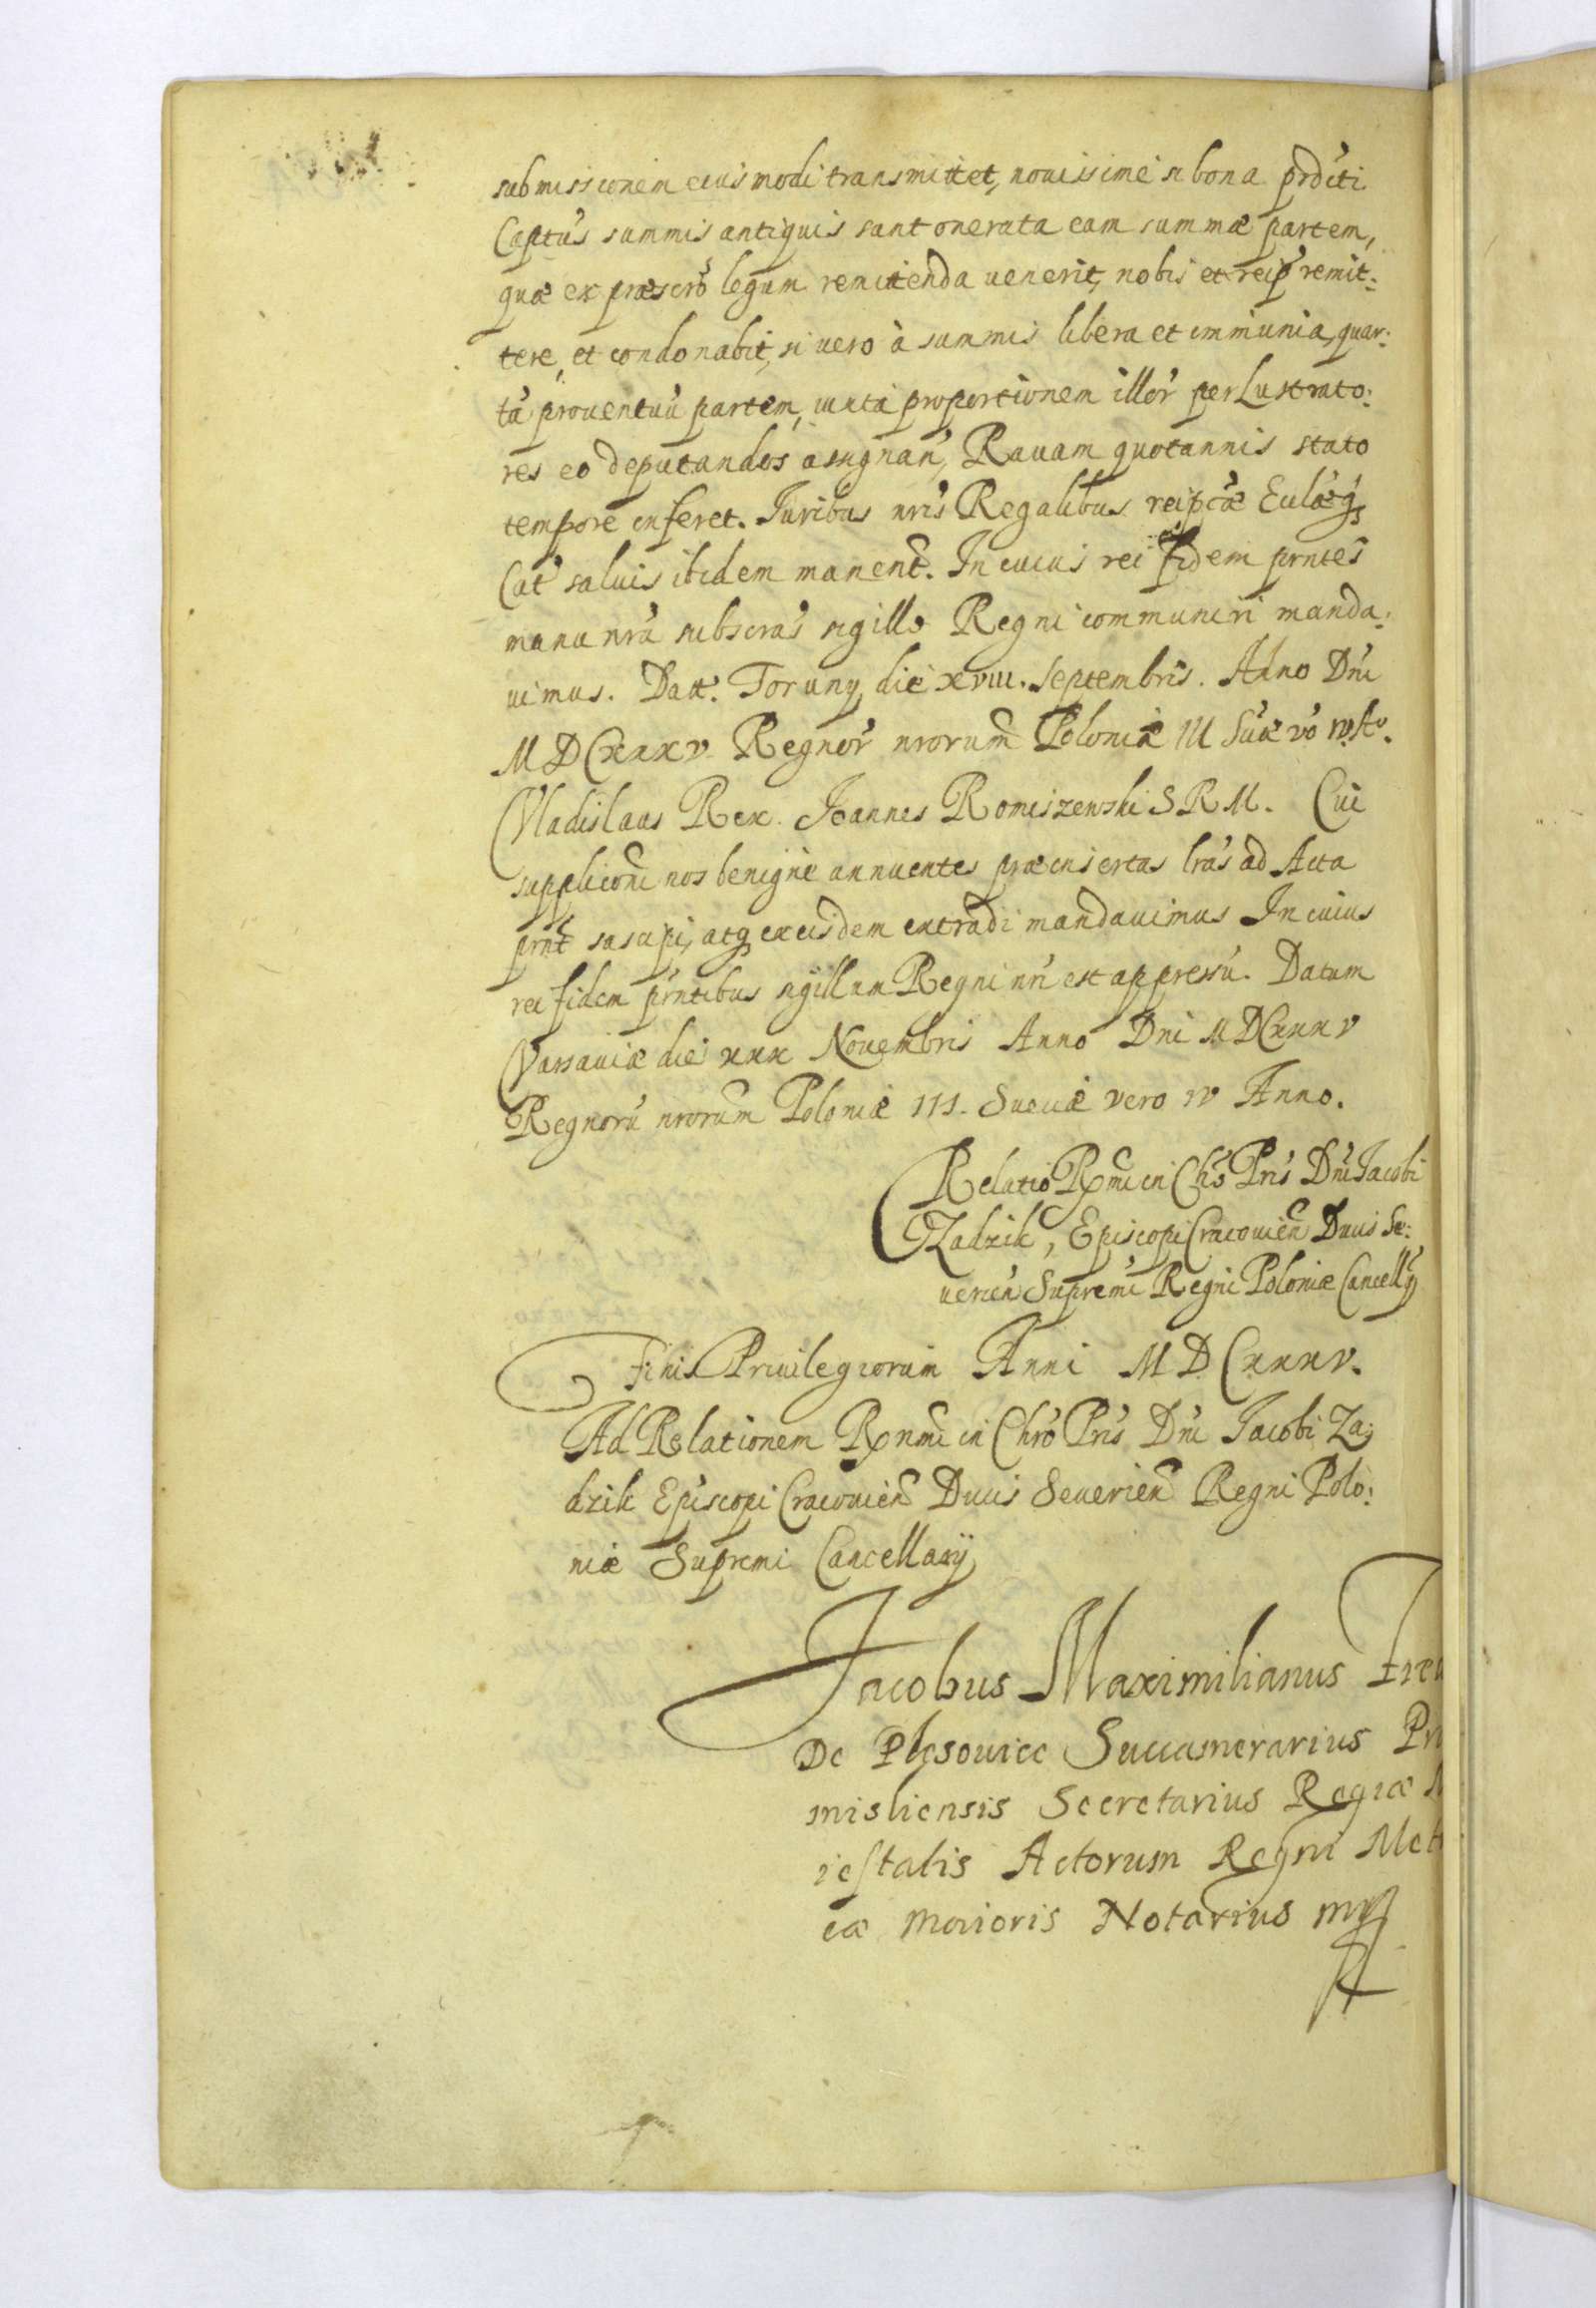 submissionem eiusmodi transmittet, nouissime si bona prdcti
Captus summis antiquis sunt onerata eam summæ partem,
quæ ex præscro legum remittenda uenerit, nobis et reip remit:
tere, et condonabit, si uero à summis libera et immunia, quar:
tã prouentuũ partem, iuxta proportionem illor per Lustrato:
res eo deputandos assignan, Rauam quotannis stato
tempore inferet. Iuribus nris Regalibus reipcæ Eclæq
Cat saluis ibidem manent. In cuius rei fidem prntes
manu nra subscras sigillo Regni communiri manda:
uimus. Datt. Toruny die XVIII. Septembris. Anno Dni
MDCxxxv Regnor nrorum Poloniæ III Suæ vo IV Ao.
Vladislaus Rex. Ioannes Romiszewski S R M. Cui
suppliconi nos benigne annuentes præinsertas lras ad Acta
prnt suscipi, atq ex eisdem extradi mandauimus In cuius
rei fidem prntibus sigillum Regni nri est appressũ. Datum
Varsauiæ die xxx Nouembris Anno Dni MDCxxxv
Regnorũ nrorum Poloniæ III. Sueciæ vero IV Anno.
Relatio Rxmi in Chro Pris Dni Iacobi
Zadzik, Episcopi Cracouien Ducis Se:
uerien Supremi Regni Poloniæ Cancellÿ
Finis Priuilegiorum Anni MDCxxxv.
Ad Relationem Rxndmi in Chro Pris Dni Iacobi Za:
dzik Episcopi Cracouien Ducis Seuerien Regni Polo:
niæ Supremi Cancellarÿ
Jacobus Maximilianus Fre
De Plesouice Succamerarius Pr
misliensis Secretarius Regiæ M
iestatis Actorum Regni Met
cæ Maioris Notarius mp